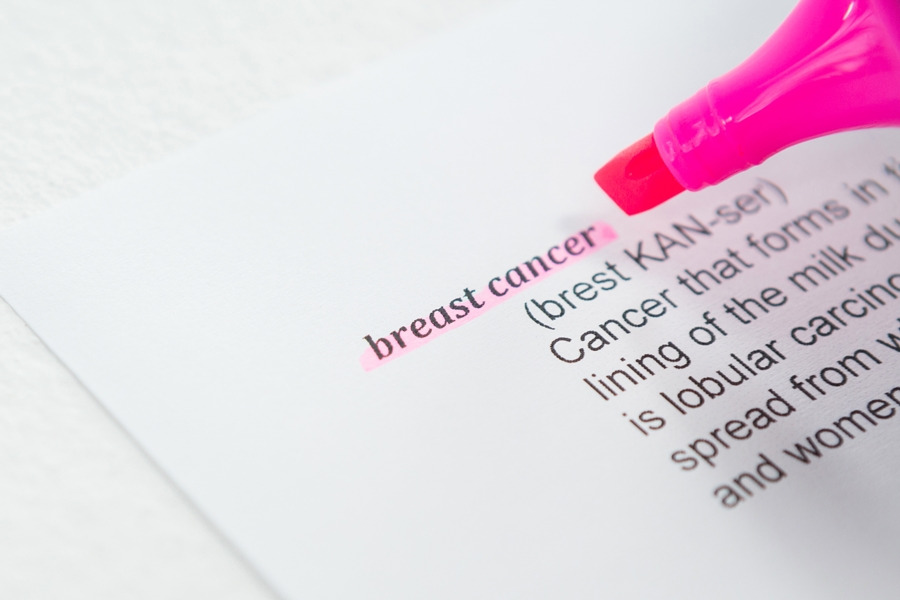 breast cancer
(brest KAN-ser)
Cancer that forms in
lining of the milk
is lobular
spread from
and women